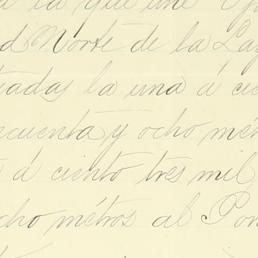 a la que une
d Norte de la La
tuadas la una á ci
cuenta y ocho mé
á ciento tres mil
cho métros al Pon